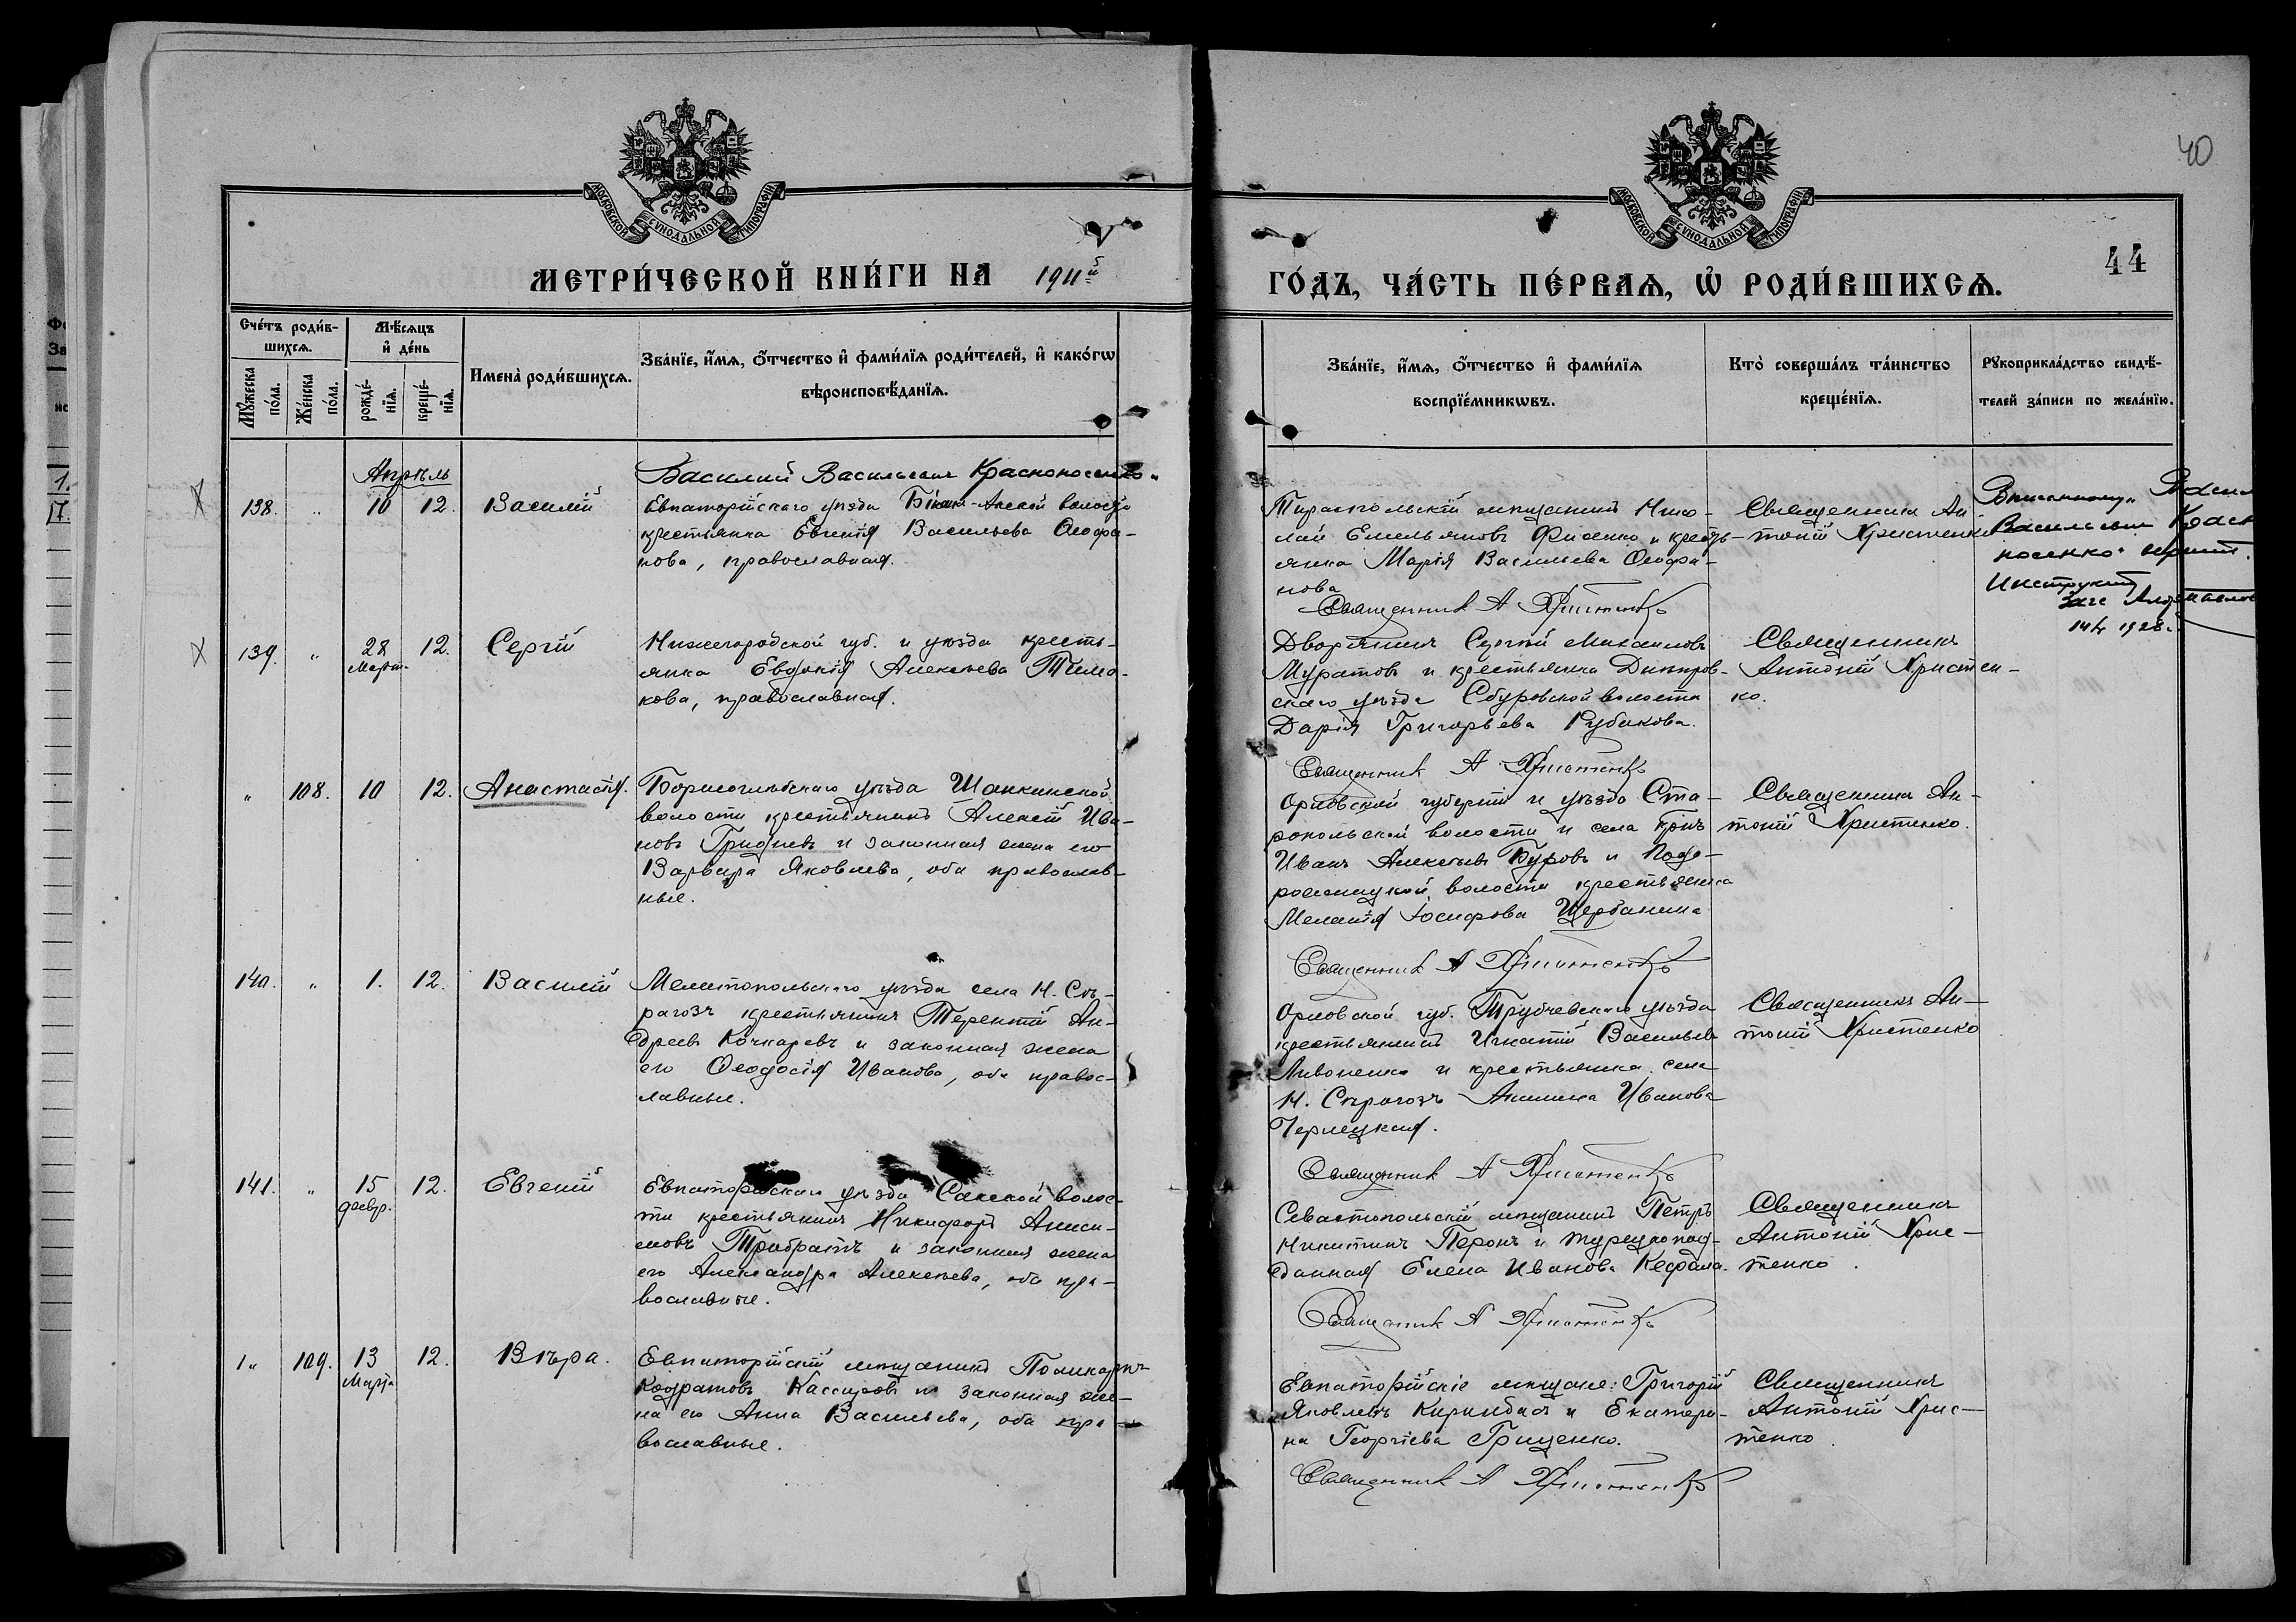 40
МОСКОВСКОЙ СѴНОДАЛЬНОЙ ТИПОГРАФІИ
МОСКОВСКОЙ СѴНОДАЛЬНОЙ ТИПОГРАФІИ
44
МЕТРИ́ЧЕСКОЙ КНИ́ГИ НА 1911й
ГО́ДЪ, ЧА́СТЬ ПЕ́РВАѦ, Ѡ҆ РОДИ́ВШИХСѦ.
Сче́тъ роди́в-
шихсѧ.
Мѣ́сѧцъ
и҆ де́нь
Мꙋ́жеска
по́ла.
Же́нска
по́ла.
рожде́-
нїѧ.
креще́-
нїѧ.
Имена̀ роди́вшихсѧ.
Зва́нїе, и҆́мѧ, ѻ҆́тчество и҆ фами́лїѧ роди́телей, и҆ како́гѡ
вѣроисповѣ́данїѧ.
Зва́нїе, и҆́мѧ, ѻ҆́тчество и҆ фами́лїѧ
воспрїе́мникѡвъ.
Кто̀ соверша́лъ та́инство
креще́нїѧ.
Рꙋкоприкла́дство свидѣ́-
телей за́писи по жела́нїю.
Апрѣль
Василий Васильевич
138. " 10 12. Василій
Евпаторійскаго уѣзда волости
крестьянка Евгенія Васильева Ѳеофа-
нова, православная.
Тираспольскій мѣщанинъ Нико-
лай Емельяновъ Фисенко и кресть-
янка Марія Васильева Ѳеофа-
нова
Священникъ Ан-
тоній Христенко
Василь
Васильевич
14/ 1928 г.
Священник А Христенко
139. " 28 12. Сергій
Март.
Нижегородской губ. и уѣзда кресть-
янка Евдокія Алексѣева Тима-
кова, православная.
Дворянинъ Сергій Михаиловъ
Муратовъ и крестьянка Днѣпров-
скаго уѣзда волости
Дарія Григорьева Рубикова.
Священникъ
Антоній Христен-
ко.
Священник А Христенко
" 108. 10 12. Анастасія.
Борисоглѣбскаго уѣзда Шапкинской
волости крестьянинъ Алексѣй Ива-
новъ Гриднев и законная жена его
Варвара Яковлева, оба православ-
ные.
Орловской губерніи и уѣзда Ста-
ропольской волости и села крнъ
Иванъ Алексѣевъ Буровъ и
волости крестьянка
Меланія Іосифова Щербакина
Священникъ Ан-
тоній Христенко.
Священник А Христенко
140. " 1. 12. Василій
Мелитопольскаго уѣзда села Н. Сѣ-
рагозъ крестьянинъ Терентій Ан-
дреевъ Кочкаревъ и законная жена
его Ѳеодосія Иванова, оба правос-
лавные.
Орловской губ. Трубчевскаго уѣзда
крестьянинъ Игнатій Васильевъ
и крестьянка села
Н. Сѣрагозъ Акилина Иванова
Черлецкая.
Священникъ Ан-
тоній Христенко
Священник А Христенко
141. " 15 12. Евгеній
февр.
Евпаторійскаго уѣзда Сакской волос-
ти крестьянинъ Никифоръ Аниси-
мовъ Трибратъ и законная жена
его Александра Алексѣева, оба пра-
вославные.
Севастопольскій мѣщанинъ Петръ
Никитинъ Перонъ и турецкопод-
данная Елена Иванова Кефала.
Священникъ
Антоній Хрис-
тенко.
Священник А Христенко
" 109. 13 12. Вѣра.
Марта
Евпаторійскій мѣщанинъ Поликарпъ
Кодратовъ Кассировъ и законная же-
на его Анна Васильева, оба пра-
вославные.
Евпаторійскіе мѣщане: Григорій
Яковлевъ Кириндасъ и Екатери-
на Георгіева Грищенко.
Священникъ
Антоній Хрис-
тенко.
Священник А Христенко